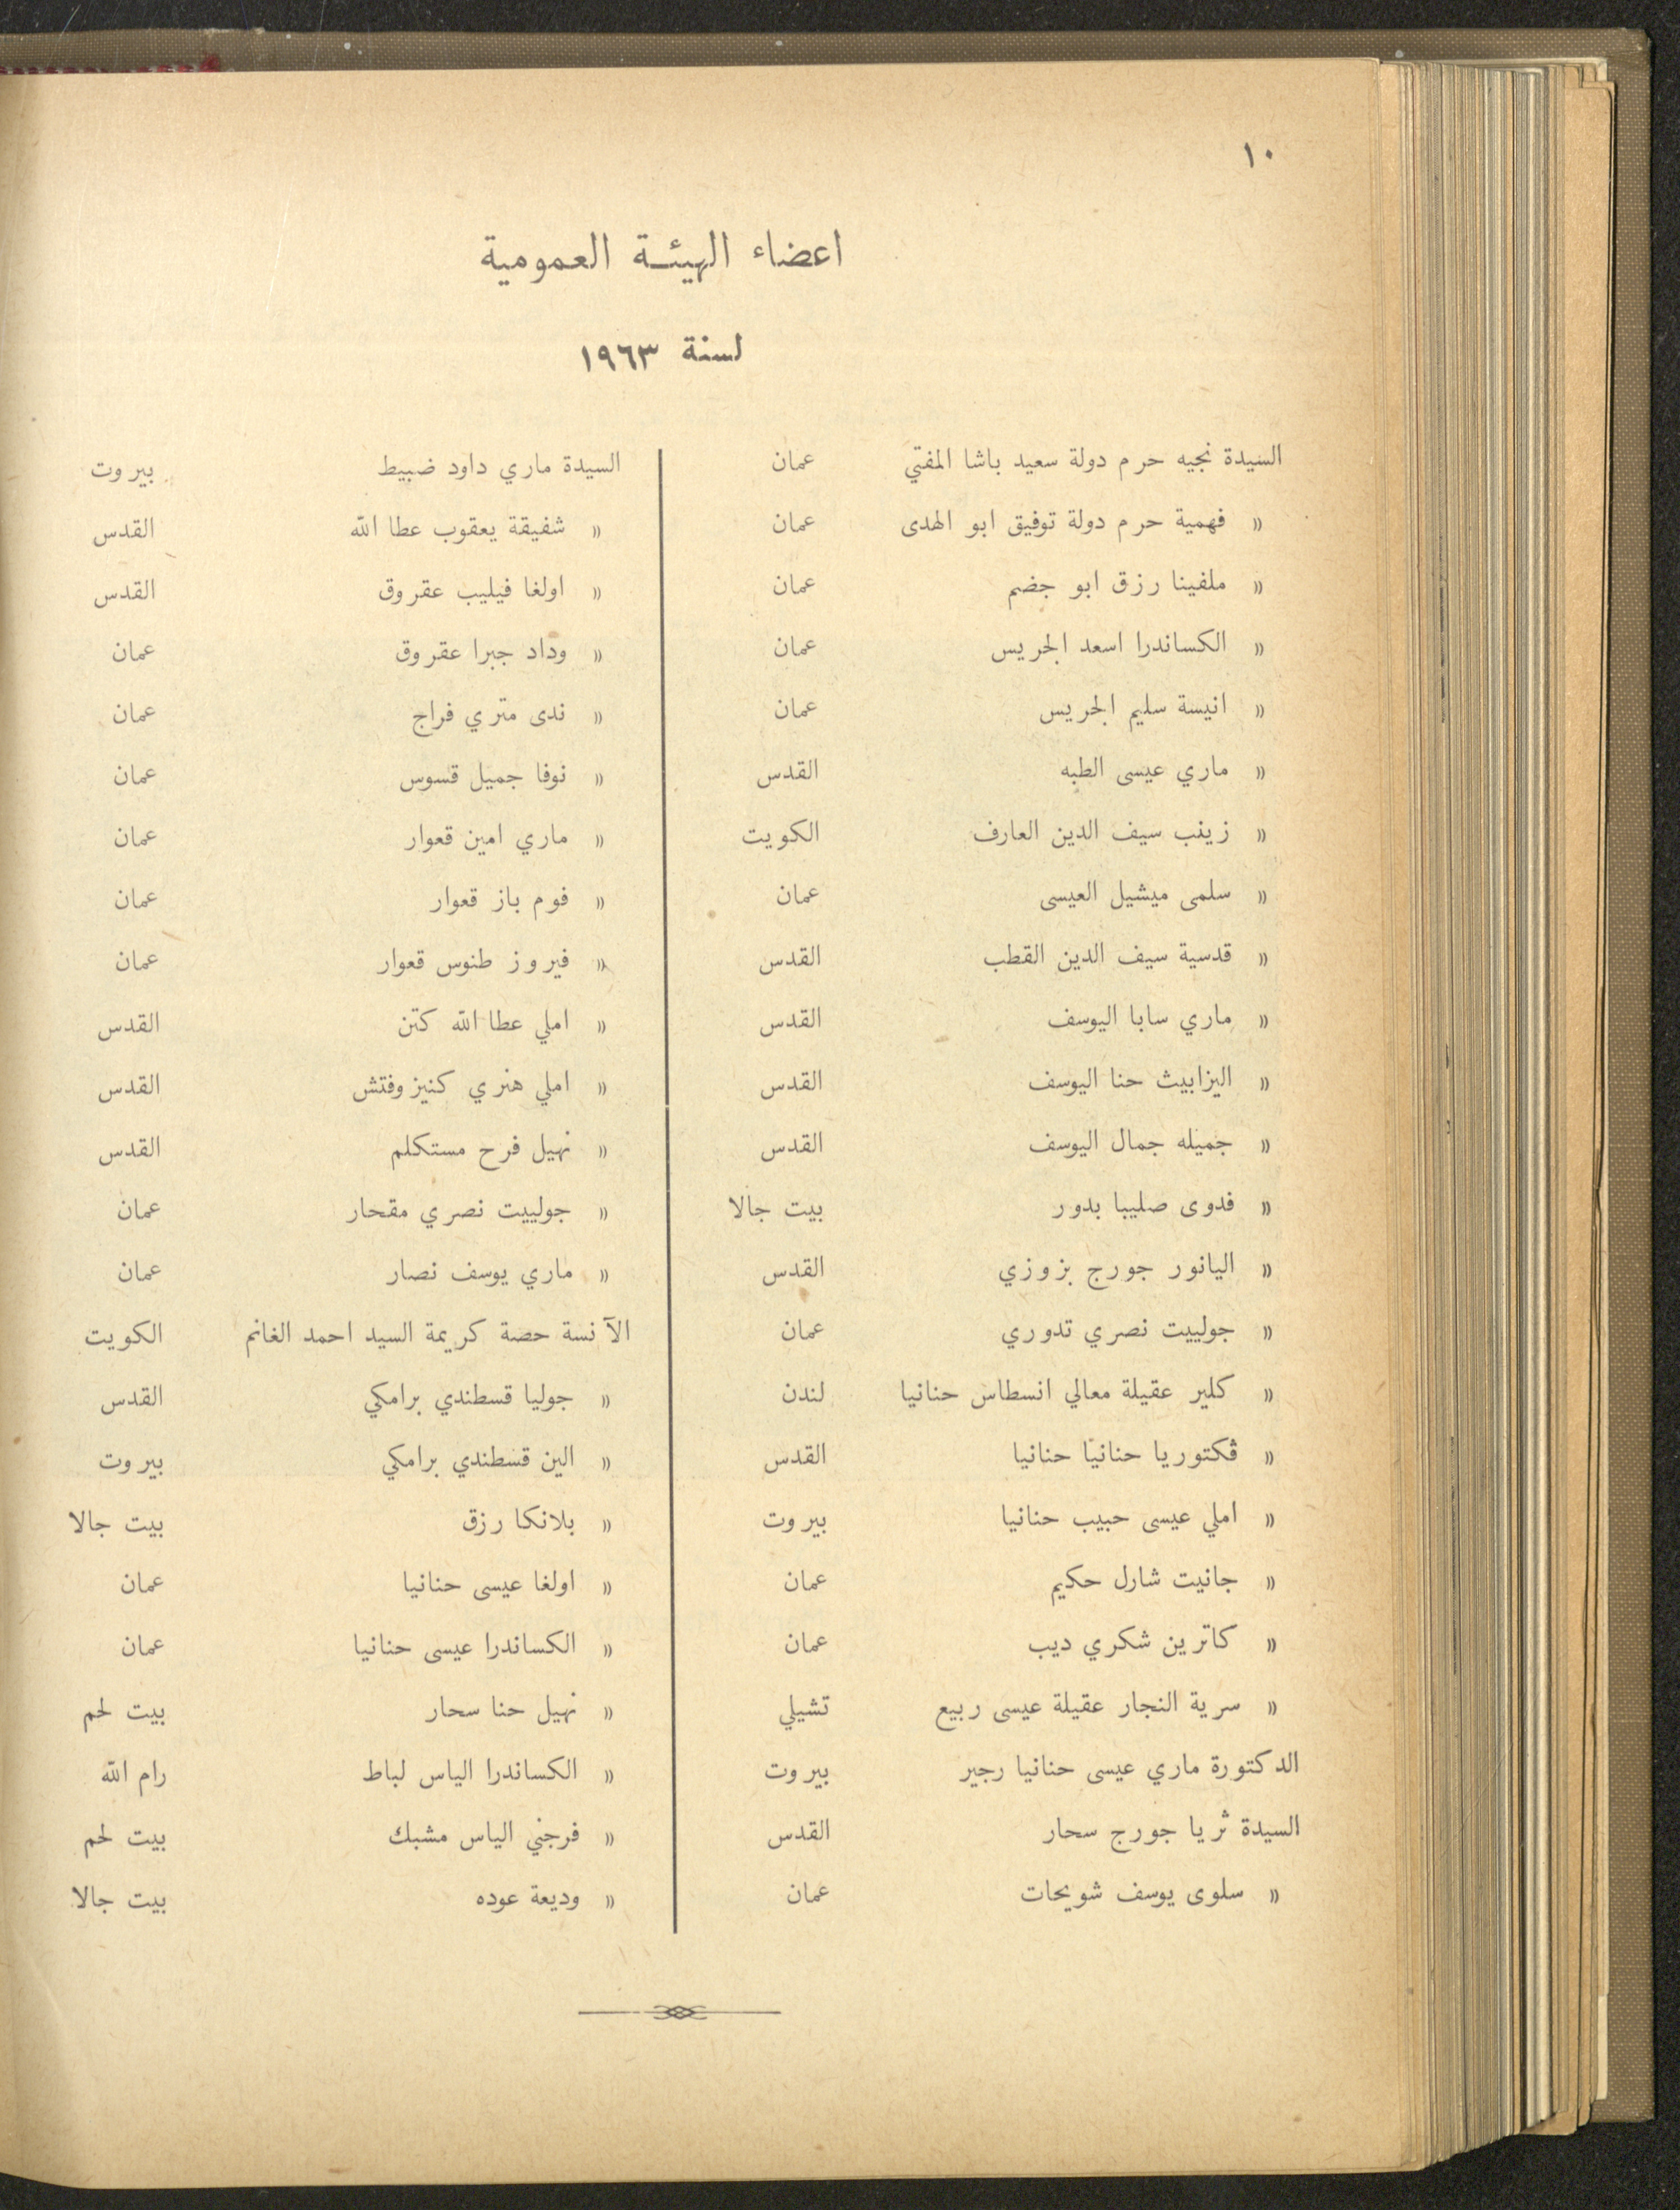 ١٠
اعضاء الهيئة العمومية
لسنة ١٩٦٣
السيدة نجيه حرم دولة سعيد باشا المفتي عمان
« فهمية حرم دولة توفيق ابو الهدى عمان
« ملفينا رزق ابو جضم عمان
« الكساندرا اسعد الجريس عمان
« انيسة سليم الجريس عمان
« ماري عيسى الطبه القدس
« زينب سيف الدين العارف الكويت
« سلمى ميشيل العيسى عمان
« قدسية سيف الدين القطب القدس
« ماري سابا اليوسف القدس
« اليزابيث حنا اليوسف القدس
« جميله جمال اليوسف القدس
« فدوى صليبا بدور بيت جالا
« اليانور جورج بزوزي القدس
« جولييت نصري تدوري عمان
« كلير عقيلة معالي انسطاس حنانيا لندن
« ڤكتوريا حنانيا حنانيا القدس
« املي عيسى حبيب حنانيا بيروت
« جانيت شارل حكيم عمان
« كاترين شكري ديب عمان
« سرية النجار عقيلة عيسى ربيع تشيلي
الدكتورة ماري عيسى حنانيا رجير بيروت
السيدة ثريا جورج سحار القدس
« سلوى يوسف شويحات عمان
السيدة ماري داود ضبيط بيروت
« شفيقة يعقوب عطا الله القدس
« اولغا فيليب عقروق القدس
« وداد جبرا عقروق عمان
« ندى متري فراج عمان
« نوفا جميل قسوس عمان
« ماري امين قعوار عمان
« فوم باز قعوار عمان
« فيروز طنوس قعوار عمان
« املي عطا الله كتن القدس
« املي هنري كنيزوفتش القدس
« نهيل فرح مستكلم القدس
« جولييت نصري مقحار عمان
« ماري يوسف نصار عمان
الآنسة حصة كريمة السيد احمد الغانم الكويت
« جوليا قسطندي برامكي القدس
« الين قسطندي برامكي بيروت
« بلانكا رزق بيت جالا
« اولغا عيسى حنانيا عمان
« الكساندرا عيسى حنانيا عمان
« نهيل حنا سحار بيت لحم
« الكساندرا الياس لباط رام الله
« فرجني الياس مشبك بيت لحم
« وديعة عوده بيت جالا